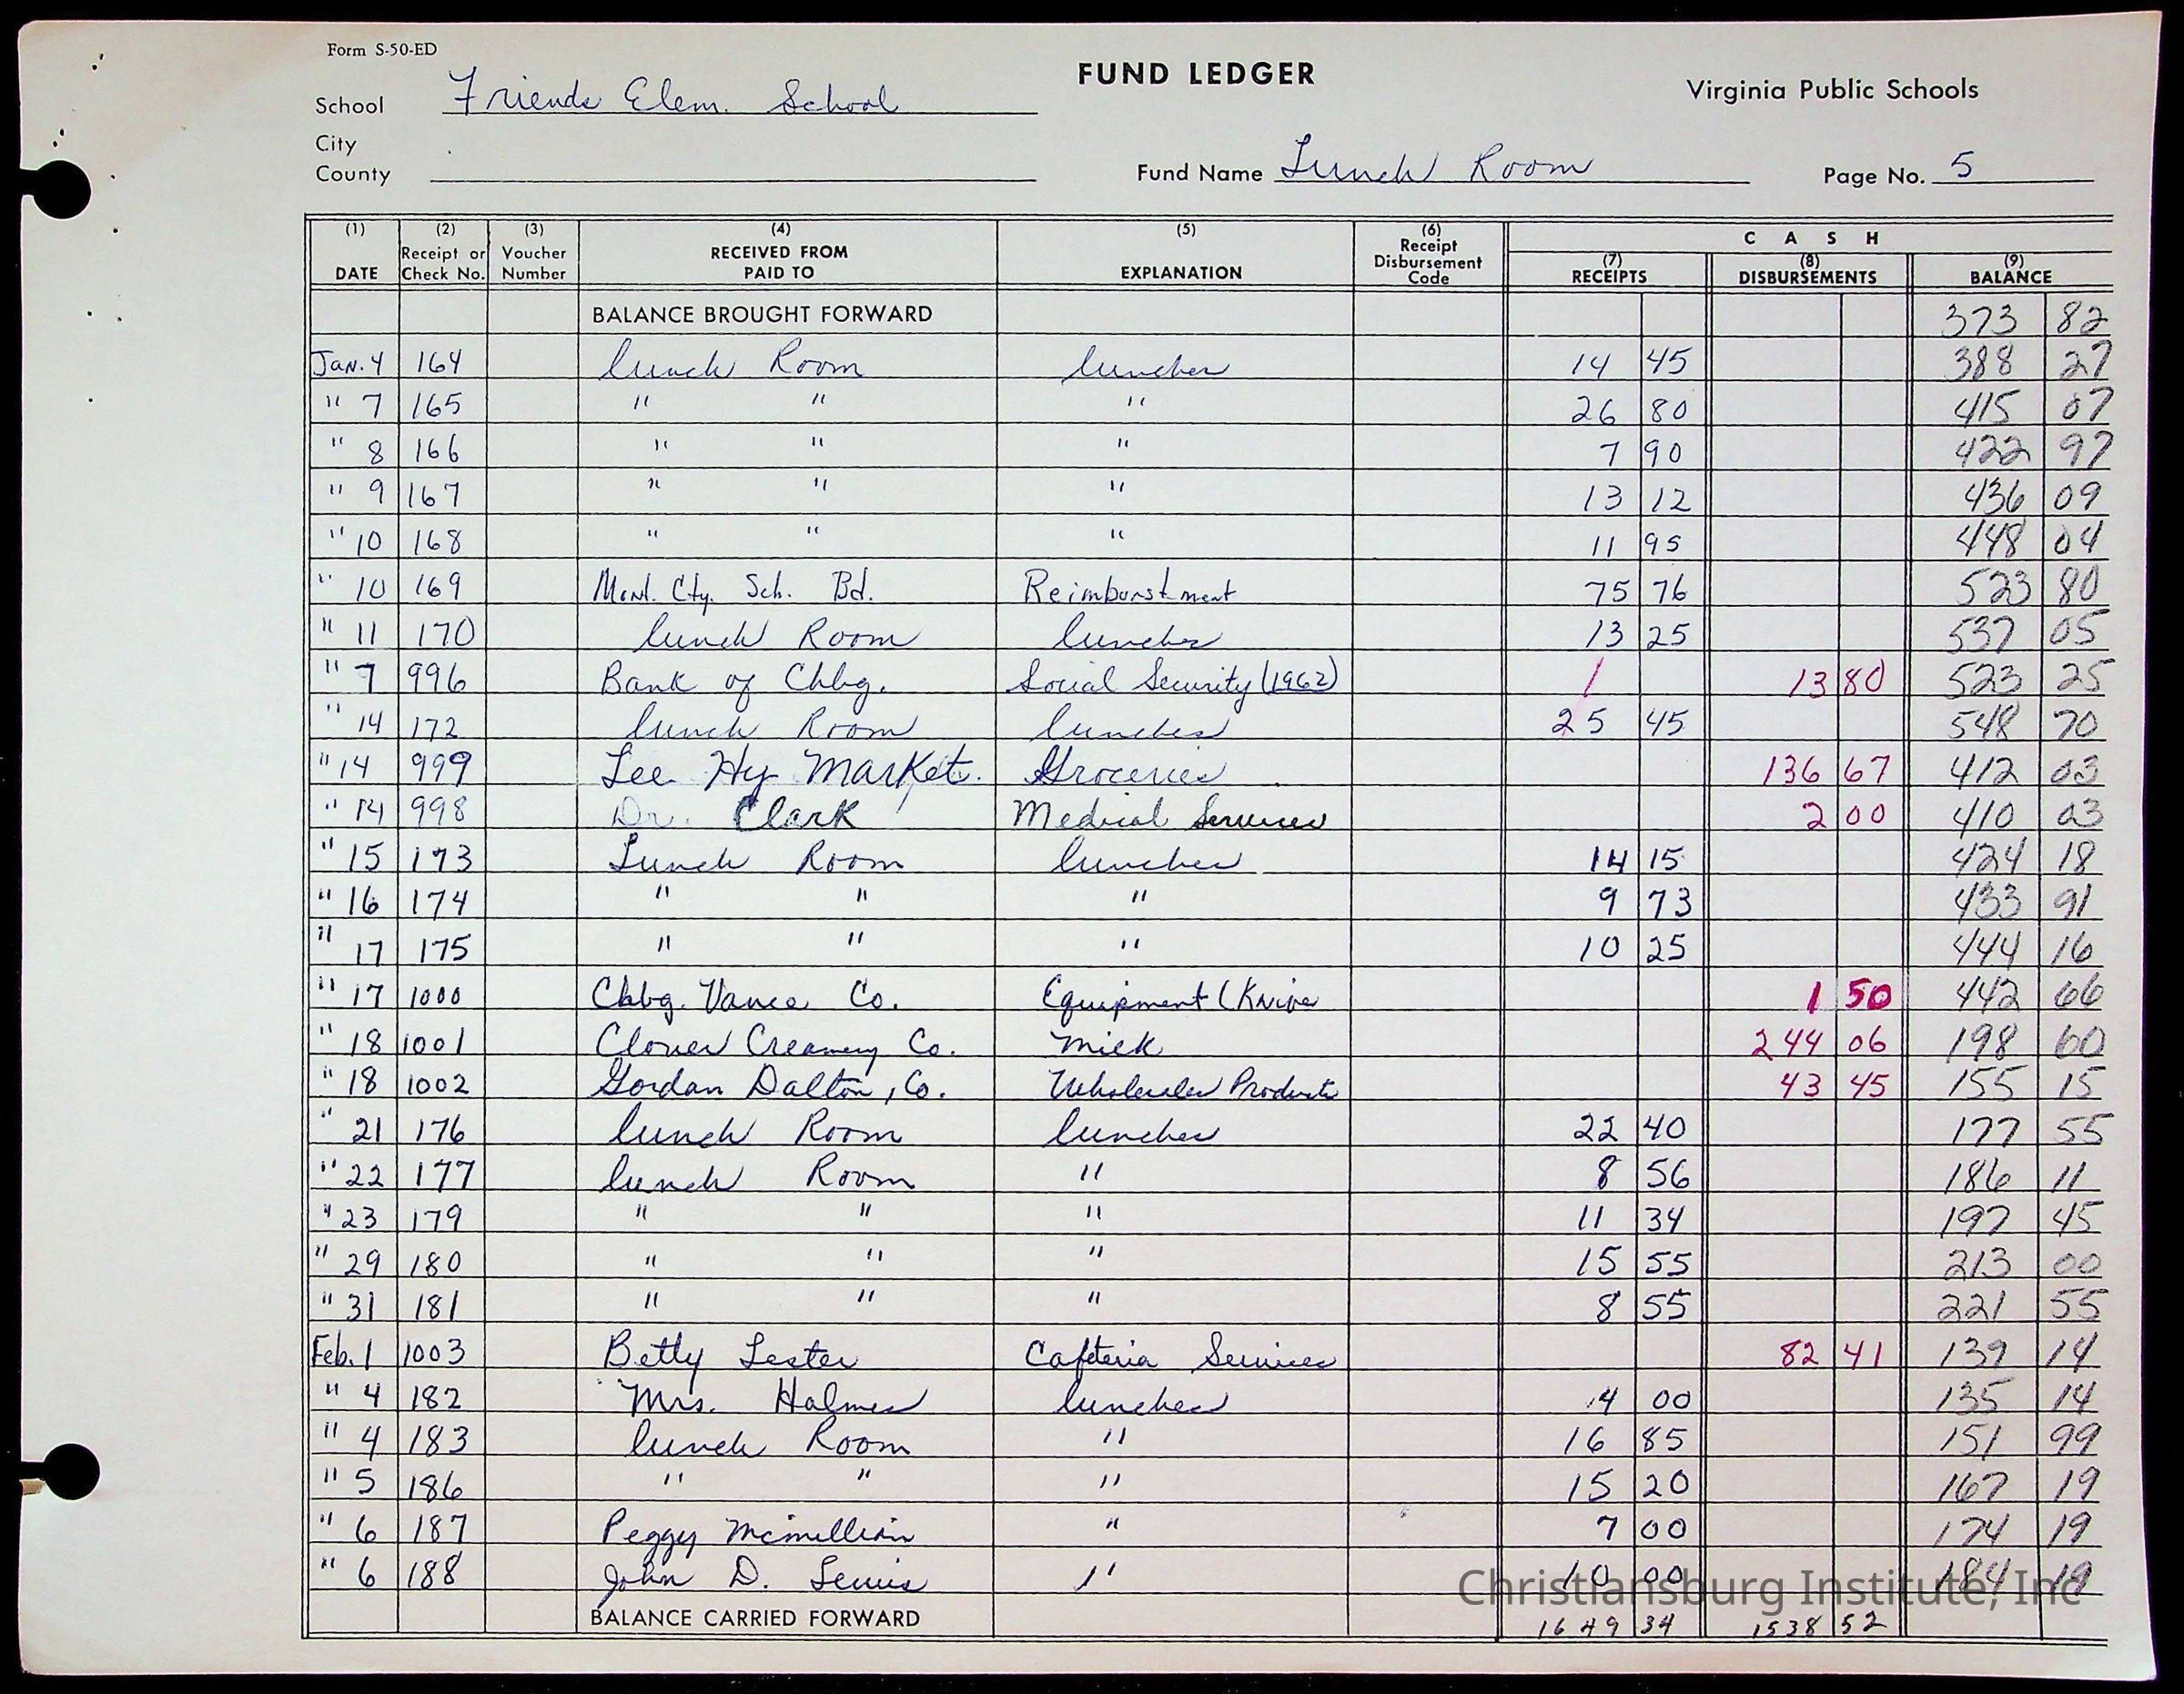 Form S-50-ED
FUND LEDGER
Virginia Public Schools
School Friends Elem. School
City
County
Fund Name Lunch Room
Page No. 5
(1) DATE (2) Receipt or Check No. (3) Voucher Number (4) RECEIVED FROM PAID TO (5) EXPLANATION (6) Receipt Disbursement Code CASH (7) RECEIPTS (8) DISBURSEMENTS (9) BALANCE
BALANCE BROUGHT FORWARD 373 82
Jan. 4 164 lunch Room lunches 14 45 388 27
" 7 165 " " " 26 80 415 07
" 8 166 " " " 7 90 422 97
" 9 167 " " " 13 12 436 09
" 10 168 " " " 11 95 448 04
" 10 169 Mont. Cty. Sch. Bd. Reimburstment 75 76 523 80
" 11 170 lunch Room lunches 13 25 537 05
" 7 996 Bank of Chbg. Social Security (1962) / 13 80 523 25
" 14 172 lunch Room lunches 25 45 548 70
" 14 999 Lee Hy Market. Groceries 136 67 412 03
" 14 998 Dr. Clark Medical Services 2 00 410 03
" 15 173 Lunch Room lunches 14 15 424 18
" 16 174 " " " 9 73 433 91
" 17 175 " " " 10 25 444 16
" 17 1000 Chbg. Vance Co. Equipment (Knives 1 50 442 66
" 18 1001 Clover Creamery Co. Milk 244 06 198 60
" 18 1002 Gordan Dalton, Co. Wholesales Products 43 45 155 15
" 21 176 lunch Room lunches 22 40 177 55
" 22 177 lunch Room " 8 56 186 11
" 23 179 " " " 11 34 197 45
" 29 180 " " " 15 55 213 00
" 31 181 " " " 8 55 221 55
Feb. 1 1003 Betty Lester Cafeteria Services 82 41 139 14
" 4 182 Mrs. Holmes lunches 4 00 135 14
" 4 183 lunch Room " 16 85 151 99
" 5 186 " " " 15 20 167 19
" 6 187 Peggy Mcmillian " 7 00 174 19
" 6 188 John D. Lewis " 10 00 184 19
BALANCE CARRIED FORWARD 1649 34 1538 52
Christiansburg Institute, Inc